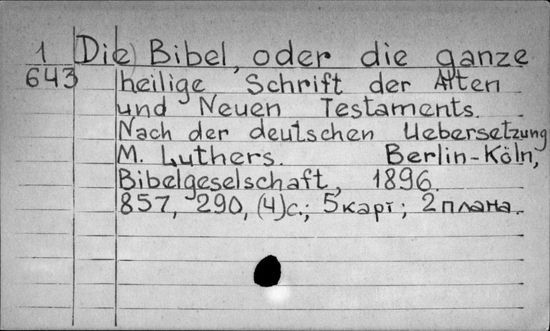 1 Die Bibel, oder die ganze
643 heilige Schrift der Alten
und Neuen Testaments.
Nach der deutschen Uebersetzung
M. Luthers. Berlin-Köln,
Bibelgeselschaft, 1896.
857, 290, (4)с.; 5 карт; 2 плана.